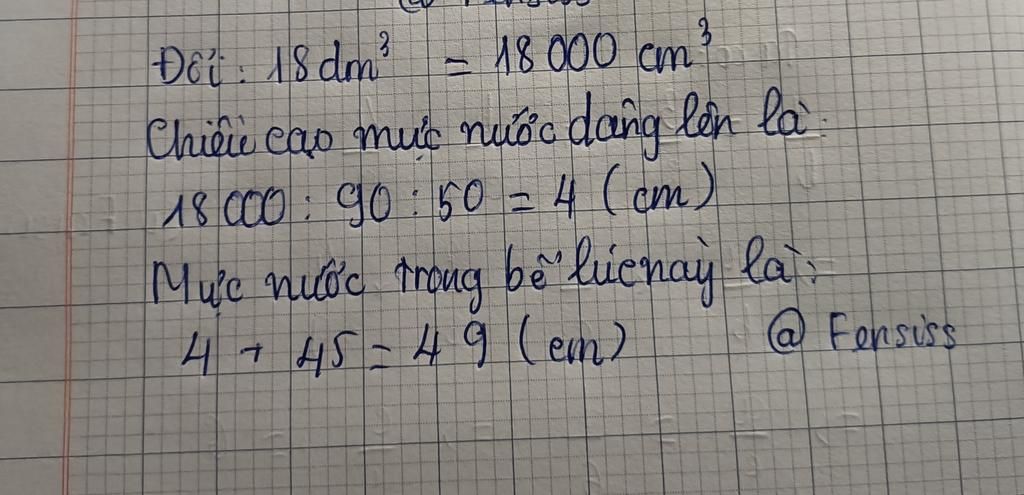 Đổi: 18dm³ = 18 000 cm³
Chiều cao mực nước dâng lên là:
18 000 : 90 : 50 = 4 (cm)
Mực nước trong bể lúc này là:
4 + 45 = 49 (cm)
@ Fensiss